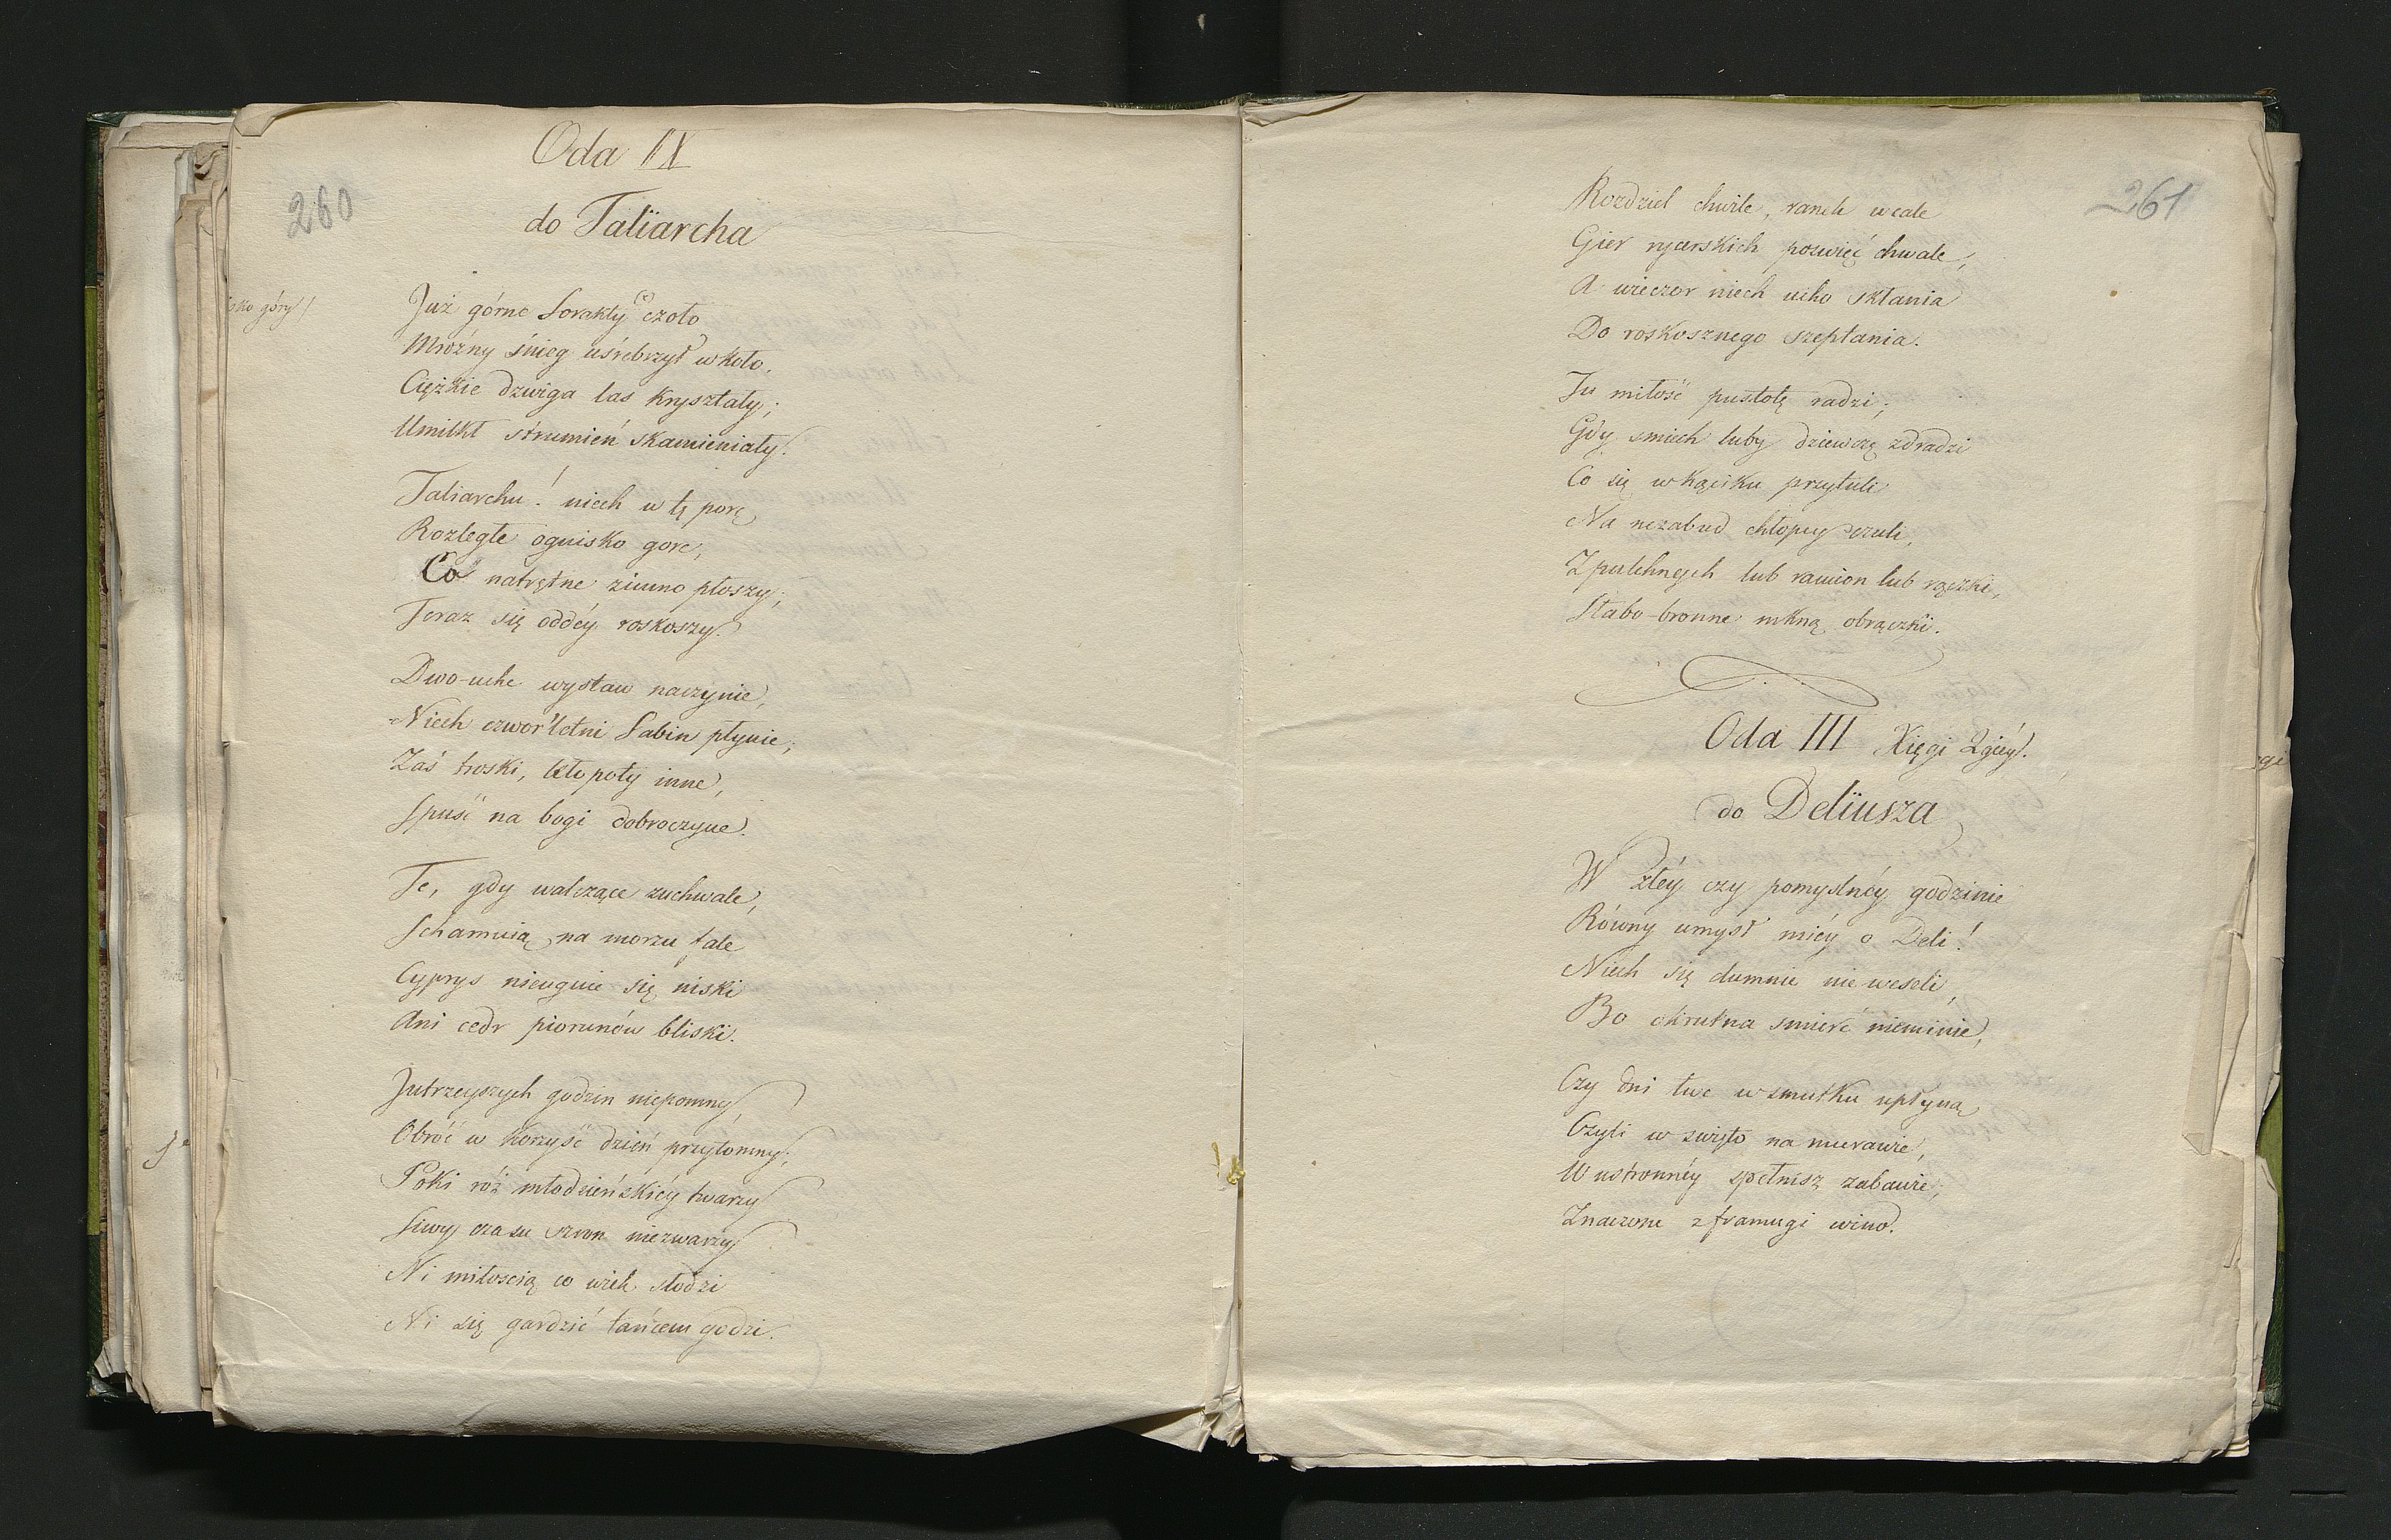 260
Oda IX
do Taliarcha
sko góry)
Już górne Sorakty (a) czoło
Mroźny śnieg uśrebrzył wkoło.
Ciężkie dzwiga las kryształy;
Umilkł strumień skamieniały.
Taliarchu! niech w tę porę
Rozległe ognisko gore,
Co natrętne zimno płoszy;
Teraz się oddéy roskoszy.
Dwo-uche wystaw naczynie,
Niech czwor'letni Sabin płynie;
Zaś troski, kłopoty inne,
Spuść na bogi dobroczyne.
Te, gdy walczące zuchwale,
Schamuią na morzu fale
Cyprys nieugnie się niski
Ani cedr piorunów bliski.
Jutrzeyszych godzin niepomny,
Obróć w korzyść dzień przytomny;
Póki róż młodzieńskiéy twarzy
Siwy czasu szron niezwarzy
Ni miłoscią co wiek słodzi
Ni się gardzić tańcem godzi.
261
Rozdziel chwile, ranek wcale
Gier rycerskich poswięć chwale,
A wieczor niech ucho skłania
Do roskosznego szeptania.
Tu miłość pustotę radzi;
Gdy smiech luby dziewczę zdradzi
Co się w kąciku przytuli
Na nezabud chłopcy czuli,
Z pulchnych lub ramion lub rączki,
Słabo-bronne mkną obrączki.
Oda III Xięgi 2giéy.
do Deliusza
W złéy czy pomyslnéy godzinie
Równy umysł miéy o Deli!
Niech się dumnie nie weseli,
Bo okrutna smierć nieminie,
Czy dni twe w smutku upłyną
Czyli w swięto na murawie,
W ustronnéy spełnisz zabawie,
Znaczone z framugi wino.